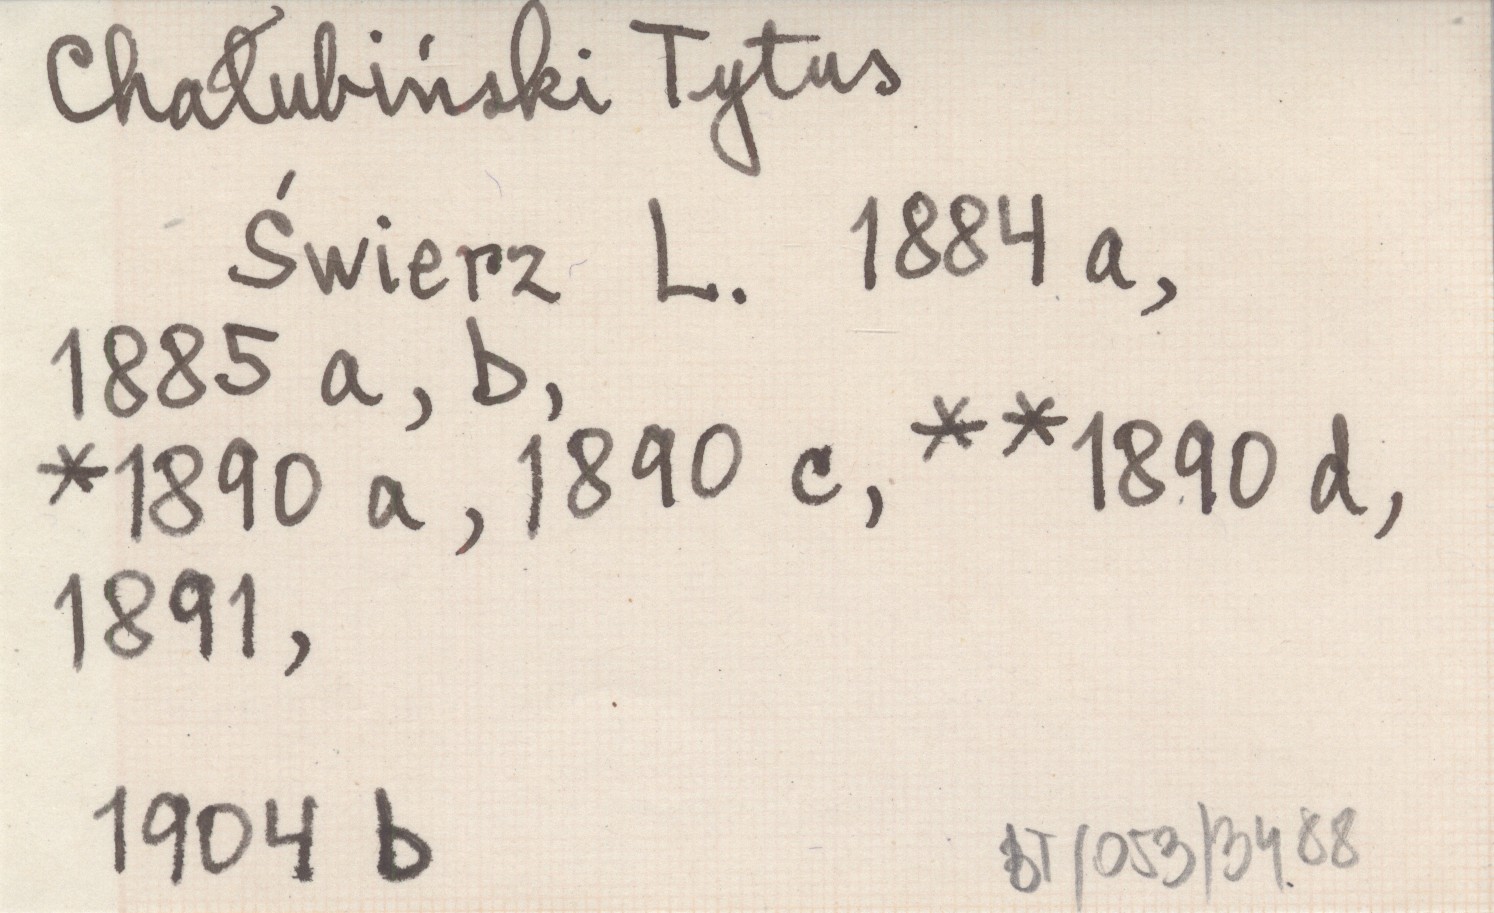 Chałubiński Tytus
Świerz L. 1884 a,
1885 a, b,
*1890 a, 1890 c, **1890 d,
1891,
1904 b
BT/053/34.88